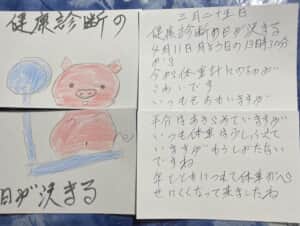 健康診断の
日が決まる
三月二十五日
健康診断の日が決まる
4月11日
13時30分
から
今から体重計にのるのが
こわいです
いつもそうおもいますが
半分はあきらめていますが
いつも体重は少しふえて
いきますが もうしかたない
ですね
年をとるにつれて体重がへら
せにくくなって来ましたね